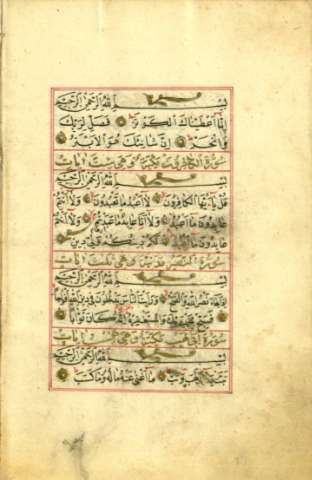 بسم الله الرحمن الرحيم
إنا أعطيناك الكوثر فصل لربك
وانحر إن شانئك هو الأبتر
سورة الكافرون مكية وهي ست آيات
بسم الله الرحمن الرحيم
قل يا أيها الكافرون لا أعبد ما تعبدون ولا أنتم
عابدون ما أعبد ولا أنا عابد ما عبدتم ولا أنتم
عابدون ما أعبد لكم دينكم ولي دين
سورة النصر مدنية وهي ثلث آيات
بسم الله الرحمن الرحيم
إذا جاء نصر الله والفتح ورأيت الناس يدخلون في دين الله أفواجا
فسبح بحمد ربك واستغفره إنه كان توابا
سورة أبي لهب مكية وهي خمس آيات
بسم الله الرحمن الرحيم
تبت يدا أبي لهب وتب ما أغنى عنه ماله وما كسب